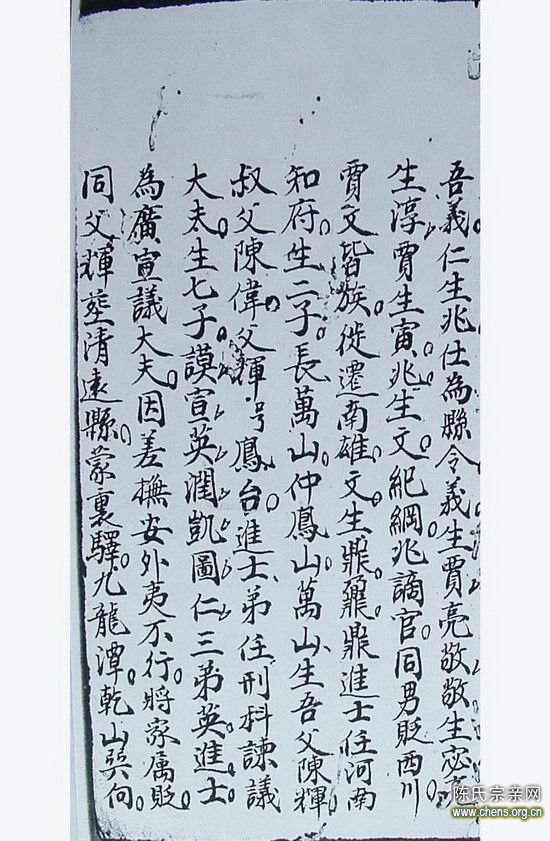 吾義仁生兆仕為縣令義生賈亮敬敬生宓亮
生淳賈生寅兆生文紀綱兆謫官同男貶西川
賈文皆族徙遷南雄文生鼎鼐鼎進士任河南
知府生二子長萬山仲鳳山萬山生吾父陳輝
叔父陳偉父輝号鳳台進士弟任刑科諫議
大夫生七子謨宣英潤凱圖仁三弟英進士
為廣宣議大夫因差撫安外夷不行將家属貶
同父輝塟清遠縣蒙裏驛九龍潭乾山巽向
陈氏宗亲网
www.chens.org.cn